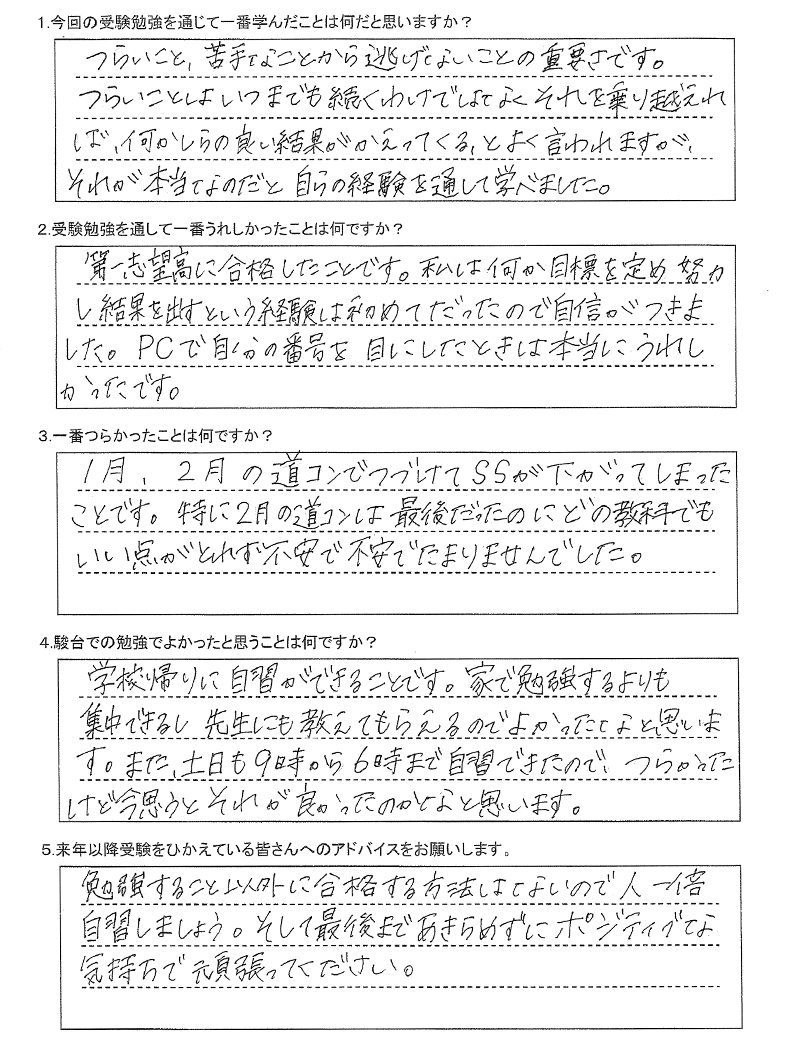 1.今回の受験勉強を通じて一番学んだことは何だと思いますか？
つらいこと、苦手なことから逃げないことの重要さです。
つらいことはいつまでも続くわけではなくそれを乗り越えれ
ば、何かしらの良い結果がかえってくる、とよく言われますが、
それが本当なのだと自らの経験を通して学べました。
2.受験勉強を通して一番うれしかったことは何ですか？
第一志望高に合格したことです。私は何か目標を定め努力
し結果を出すという経験は初めてだったので自信がつきま
した。PCで自分の番号を目にしたときは本当にうれし
かったです。
3.一番つらかったことは何ですか？
1月、2月の道コンでつづけてSSが下がってしまった
ことです。特に2月の道コンは最後だったのにどの教科でも
いい点がとれず不安で不安でたまりませんでした。
4.駿台での勉強でよかったと思うことは何ですか？
学校帰りに自習ができることです。家で勉強するよりも
集中できるし先生にも教えてもらえるのでよかったなと思いま
す。また、土日も9時から6時まで自習できたので、つらかった
けど今思うとそれが良かったのかなと思います。
5.来年以降受験をひかえている皆さんへのアドバイスをお願いします。
勉強すること以外に合格する方法はないので人一倍
自習しましょう。そして最後まであきらめずにポジティブな
気持ちで頑張ってください。